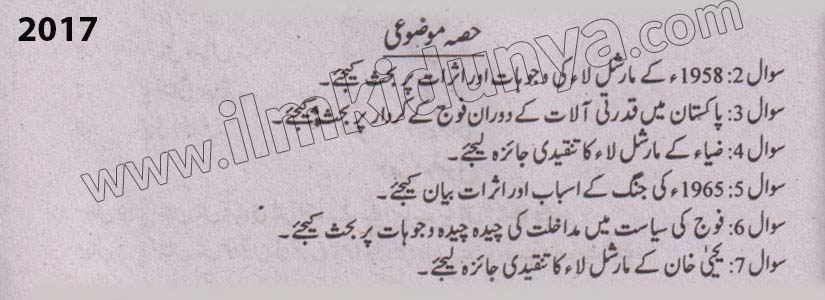 2017
حصہ موضوعی
سوال 2: 1958ء کے مارشل لاء کی وجوہات اور اثرات پر بحث کیجئے۔
سوال 3: پاکستان میں قدرتی آلات کے دوران فوج کے کردار پر بحث کیجئے۔
سوال 4: ضیاء کے مارشل لاء کا تنقیدی جائزہ لیجئے۔
سوال 5: 1965ء کی جنگ کے اسباب اور اثرات بیان کیجئے۔
سوال 6: فوج کی سیاست میں مداخلت کی چیدہ چیدہ وجوہات پر بحث کیجئے۔
سوال 7: یحییٰ خان کے مارشل لاء کا تنقیدی جائزہ لیجئے۔
www.ilmkidunya.com